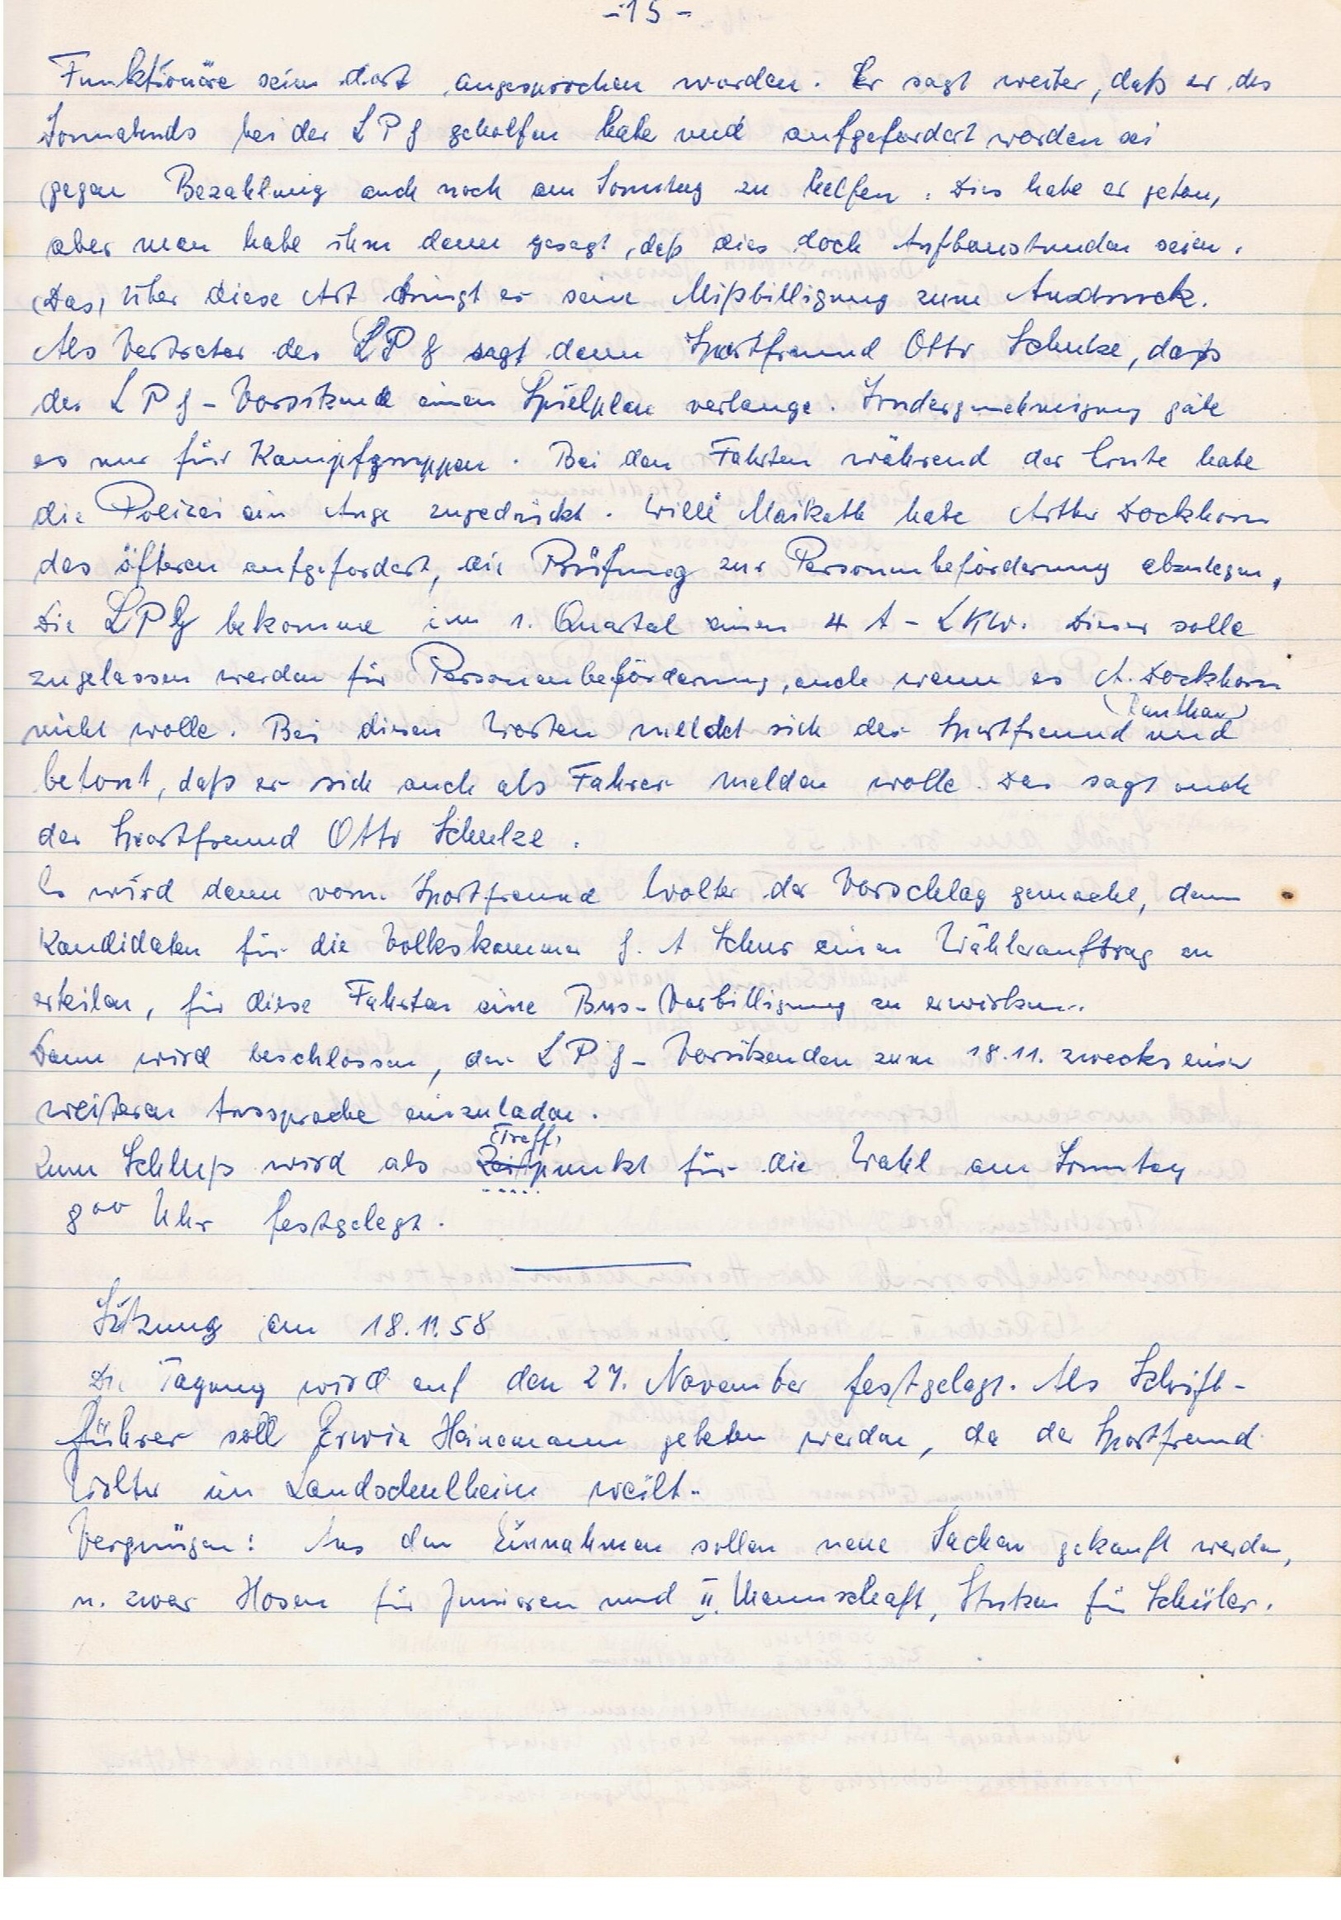 -15-
Funktionäre seien dort angesprochen worden. Er sagt weiter, daß er des
Sonnabends bei der LPG geholfen habe und aufgefordert worden sei
gegen Bezahlung auch noch am Sonntag zu helfen. Dies habe er getan,
aber man habe ihm dann gesagt, daß dies doch Aufbaustunden seien.
(Das) Über diese Art bringt er seine Mißbilligung zum Ausdruck.
Als Vertreter der LPG sagt dann Sportfreund Otto Schulze, daß
der LPG-Vorsitzende einen Spielplan verlange. Sondergenehmigung gäbe
es nur für Kampfgruppen. Bei den Fahrten während der Ernte habe
die Polizei ein Auge zugedrückt. Willi Maikath habe Arthur Dockhorn
des öfteren aufgefordert, die Prüfung zur Personenbeförderung abzulegen.
Die LPG bekomme im 1. Quartal einen H 4 A - LKW. Dieser solle
zugelassen werden für Personenbeförderung, auch wenn es A. Dockhorn
nicht wolle. Bei diesen Worten meldet sich der Sportfreund und
betont, daß er sich auch als Fahrer melden wolle. Das sagt auch
der Sportfreund Otto Schulze.
Es wird dann vom Sportfreund Wolter der Vorschlag gemacht, dem
Kandidaten für die Volkskammer G. A Schur einen Wählerauftrag zu
erteilen, für diese Fahrten eine Bus-Verbilligung zu erwirken.
Dann wird beschlossen, den LPG-Vorsitzenden zum 18.11. zwecks einer
weiteren Aussprache einzuladen.
(Treff)
Zum Schluß wird als Zeitpunkt für die Wahl am Sonntag
8⁰⁰ Uhr festgelegt.
Sitzung am 18.11.58
Die Tagung wird auf den 27. November festgelegt. Als Schrift-
führer soll Erwin Heinemann gebeten werden, da der Sportfreund
Wolter im Landschulheim weilt.
Vergnügen: Aus den Einnahmen sollen neue Sachen gekauft werden,
u. zwar Hosen für Junioren und II. Mannschaft, Stutzen für Schüler.